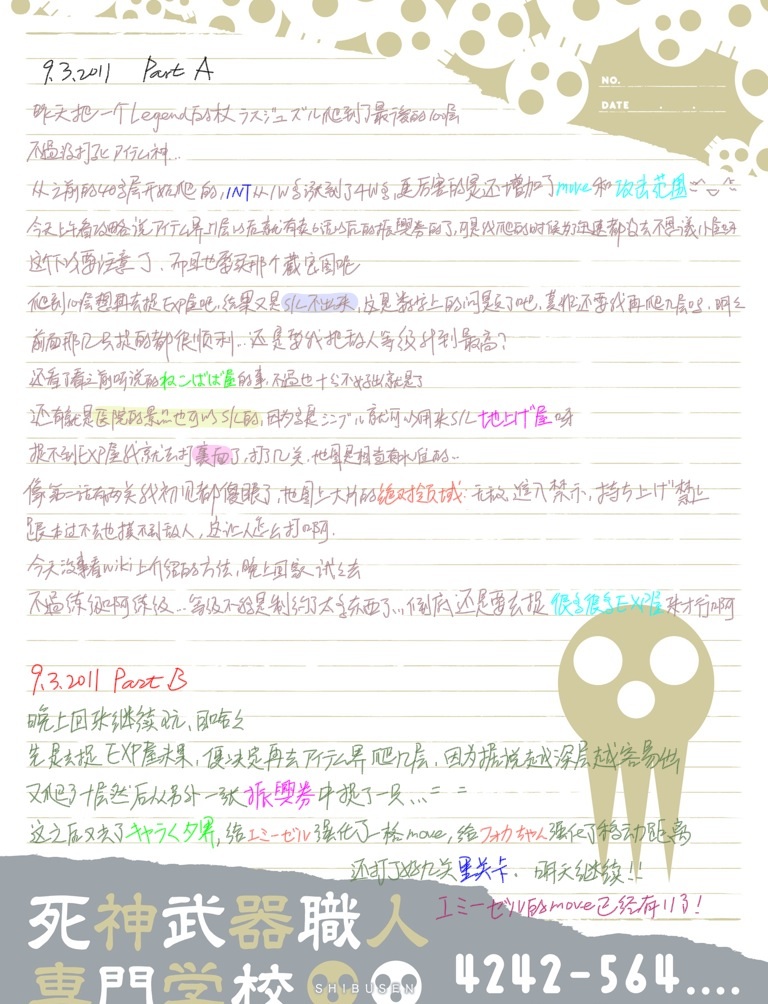 NO.
DATE . . .
9.3.2011 Part A
昨天把一个Legend的杖 ラスジュズル爬到了最後的100层
不過没打死アイテム神...
从之前的40多层开始爬的,INT从1W多涨到了4W多,更厉害的是还增加了move和攻击范围
今天上午看攻略说アイテム界 层以后就有卖 以后的振興券的了,可是我爬的时候 都没去不思議小屋
这下以要注意了,而且也需要那个藏宝图呢
爬到100层想再去捉EXP屋吧,结果又是S/L不出来,应是数据上的问题了吧,莫非还要我再爬几层吗,明明
前面那几只捉的都很順利...还是要我把敌人等级升到最高?
还看了看之前听说的ねこばば屋的事,不過也十分不好出就是了
还有就是医院的景品也可以S/L的,因为这是シンプル就可以用来S/L地上げ屋呀
捉不到EXP屋我就去打裏面了,打了几关,地图是相当有水准的..
像第二话有两关我初见都傻眼了,地图上大片的绝对領域:无敌,進入禁示,持ち上げ禁止
跟本过不去也摸不到敌人,这让人怎么打啊.
今天没事看wiki上介绍的方法,晚上回家试试去
不過练级啊练级...等级不够是制约了太多东西了...倒底还是要去捉很多很多EXP屋来才行啊
9.3.2011 Part B
晚上回来继续玩,
先是去捉EXP屋未果,便决定再去アイテム界爬几层,因为据说越深层越容易出
又爬了十层然后从另外一张振興券中捉了一只...= =
这之后又去了キャラクタ界,给エミーゼル強化了一格move,给フォカちゃん强化了移动距离
还打了好几关里关卡.明天继续!!
エミーゼル的move已经有11了!
死神武器職人
専門学校
SHIBUSEN
4242-564....